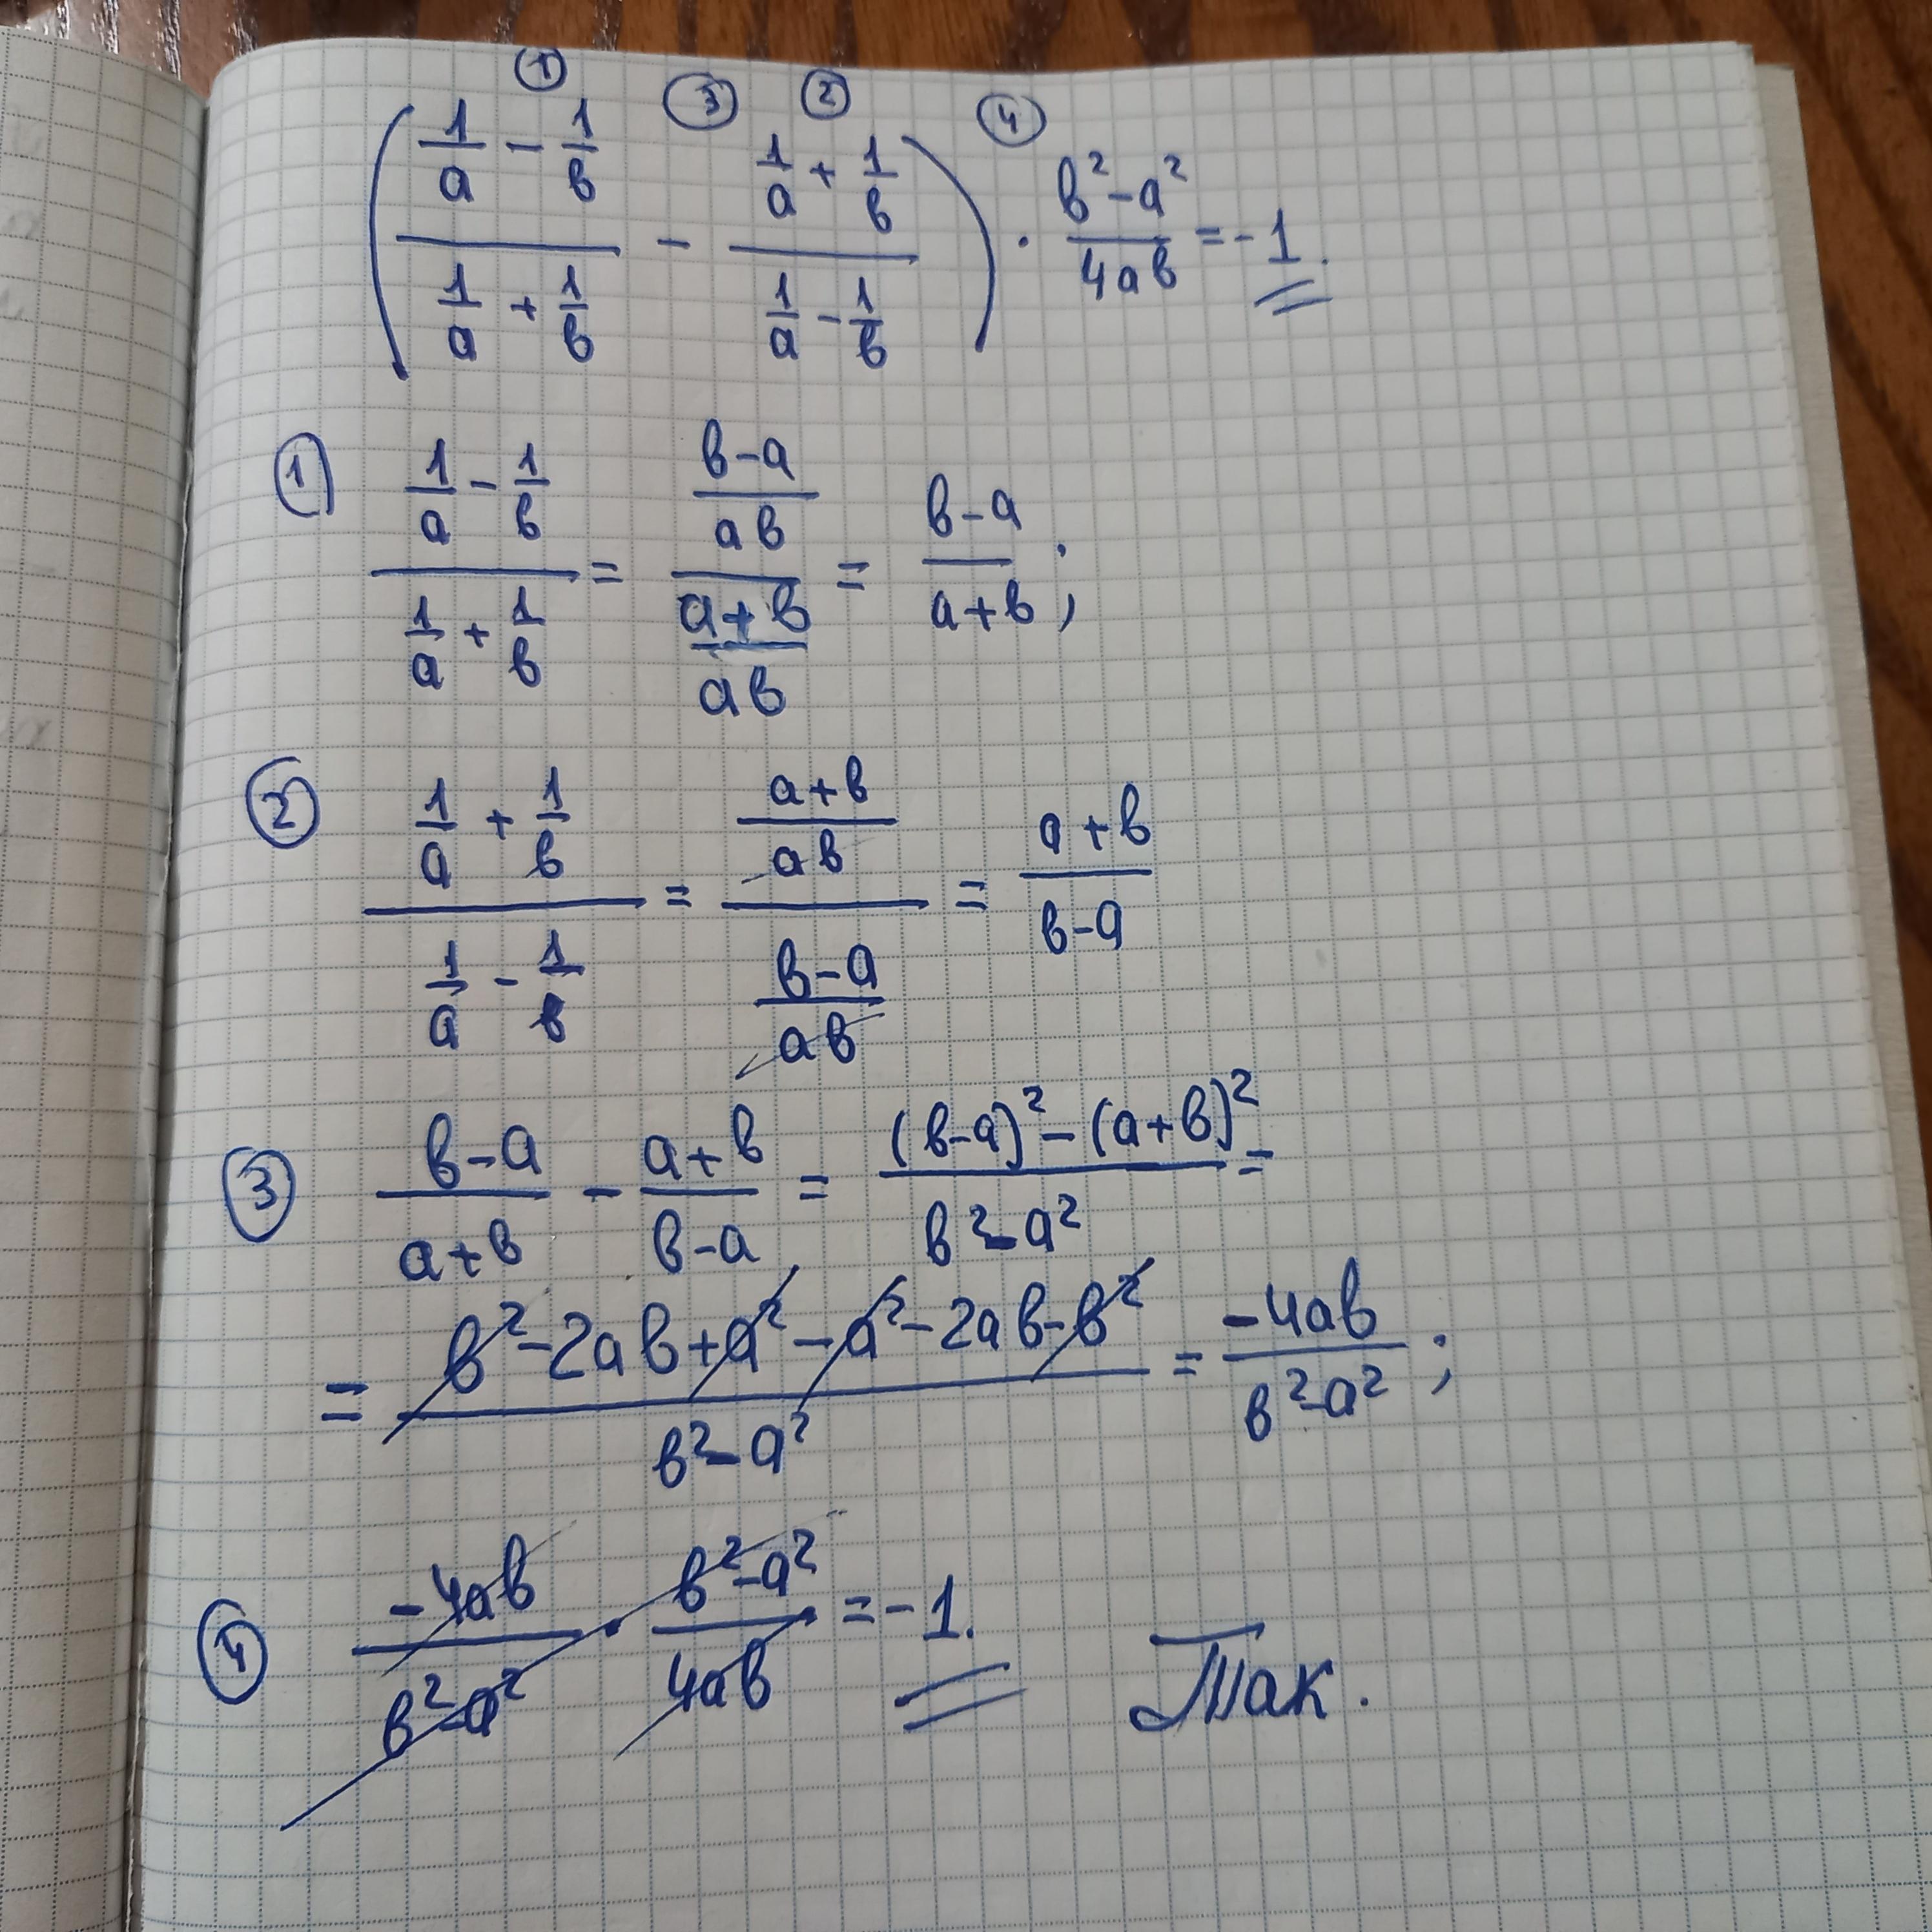 ① ③ ② ④
((1/a - 1/b)/(1/a + 1/b) - (1/a + 1/b)/(1/a - 1/b)) · (b² - a²)/(4ab) = -1.
① (1/a - 1/b)/(1/a + 1/b) = ((b-a)/(ab))/((a+b)/(ab)) = (b-a)/(a+b);
② (1/a + 1/b)/(1/a - 1/b) = ((a+b)/(ab))/((b-a)/(ab)) = (a+b)/(b-a)
③ (b-a)/(a+b) - (a+b)/(b-a) = ((b-a)² - (a+b)²)/(b² - a²) =
= (b² - 2ab + a² - a² - 2ab - b²)/(b² - a²) = (-4ab)/(b² - a²);
④ (-4ab)/(b² - a²) · (b² - a²)/(4ab) = -1. Так.